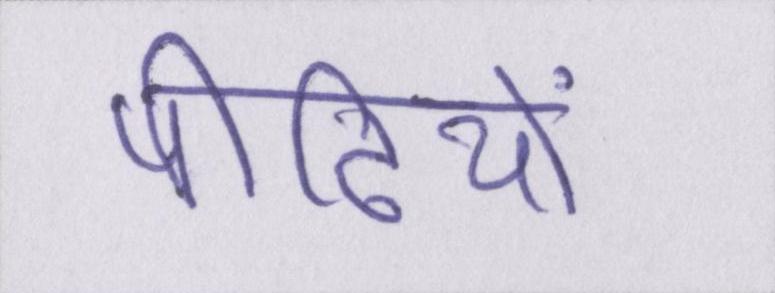 पीढियों